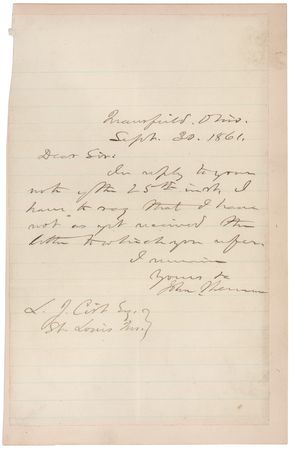 Mansfield, Ohio.
Sept. 30. 1861.
Dear Sir:
In reply to your
note of the 25th inst. I
have to say that I have
not as yet received the
letter to which you refer.
I remain
Yours &c
John Sherman
L. J. Cist Esq.
St. Louis Mo.